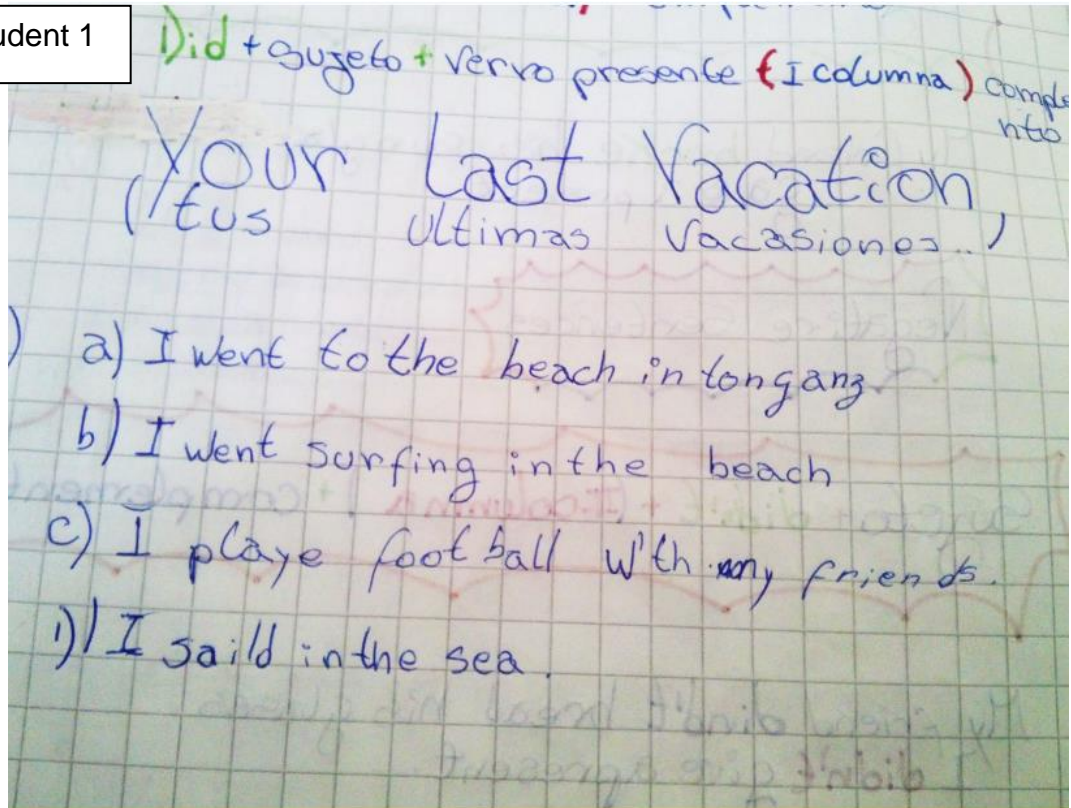 udent 1
Did + sujeto + vervo presente (I columna) comple
nto
Your Last Vacation
(tus ultimas Vacasiones..)
a) I went to the beach in tonganz
b) I went surfing in the beach
c) I playe foot ball with my friends.
I saild in the sea.